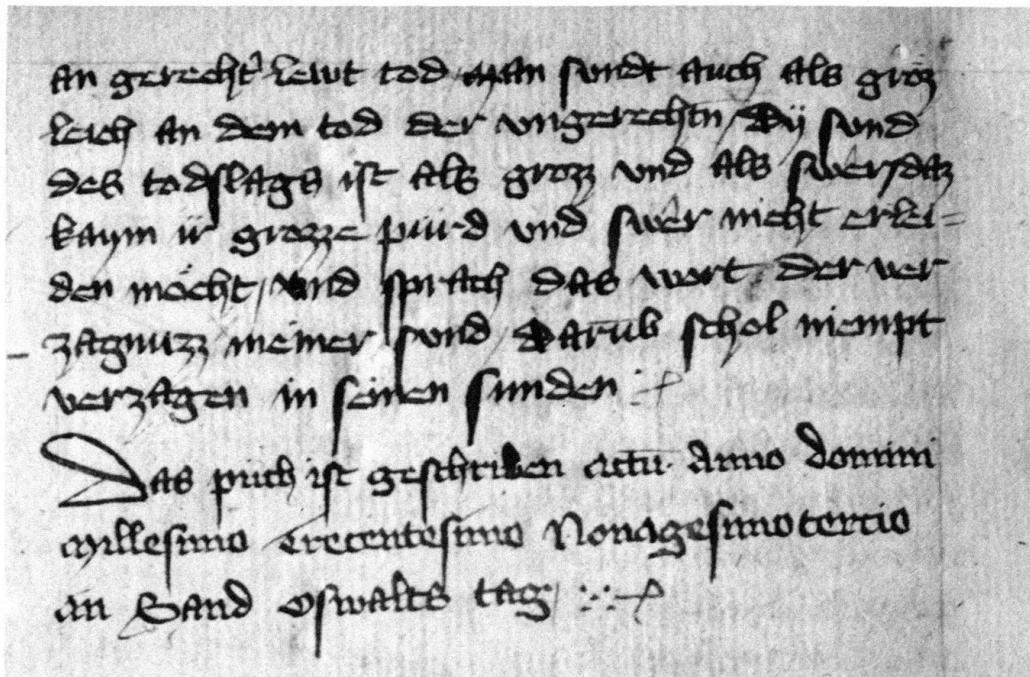 an gerecht' lewt tod man sundt auch als groz
leich an dem tod der vngerechtn / Dy sund
des todslags ist als grozz vnd als swer / daz
kaym ir grozze pürd vnd swer nicht erlei=
den möcht / und sprach das wort der ver
zagnuzz meiner sund / Darūb schol niempt
verzagen in seinen sunden
Das püch ist geschriben actū anno domini
Millesimo trecentesimo Nonagesimotercio
an Sand Oswalts tag